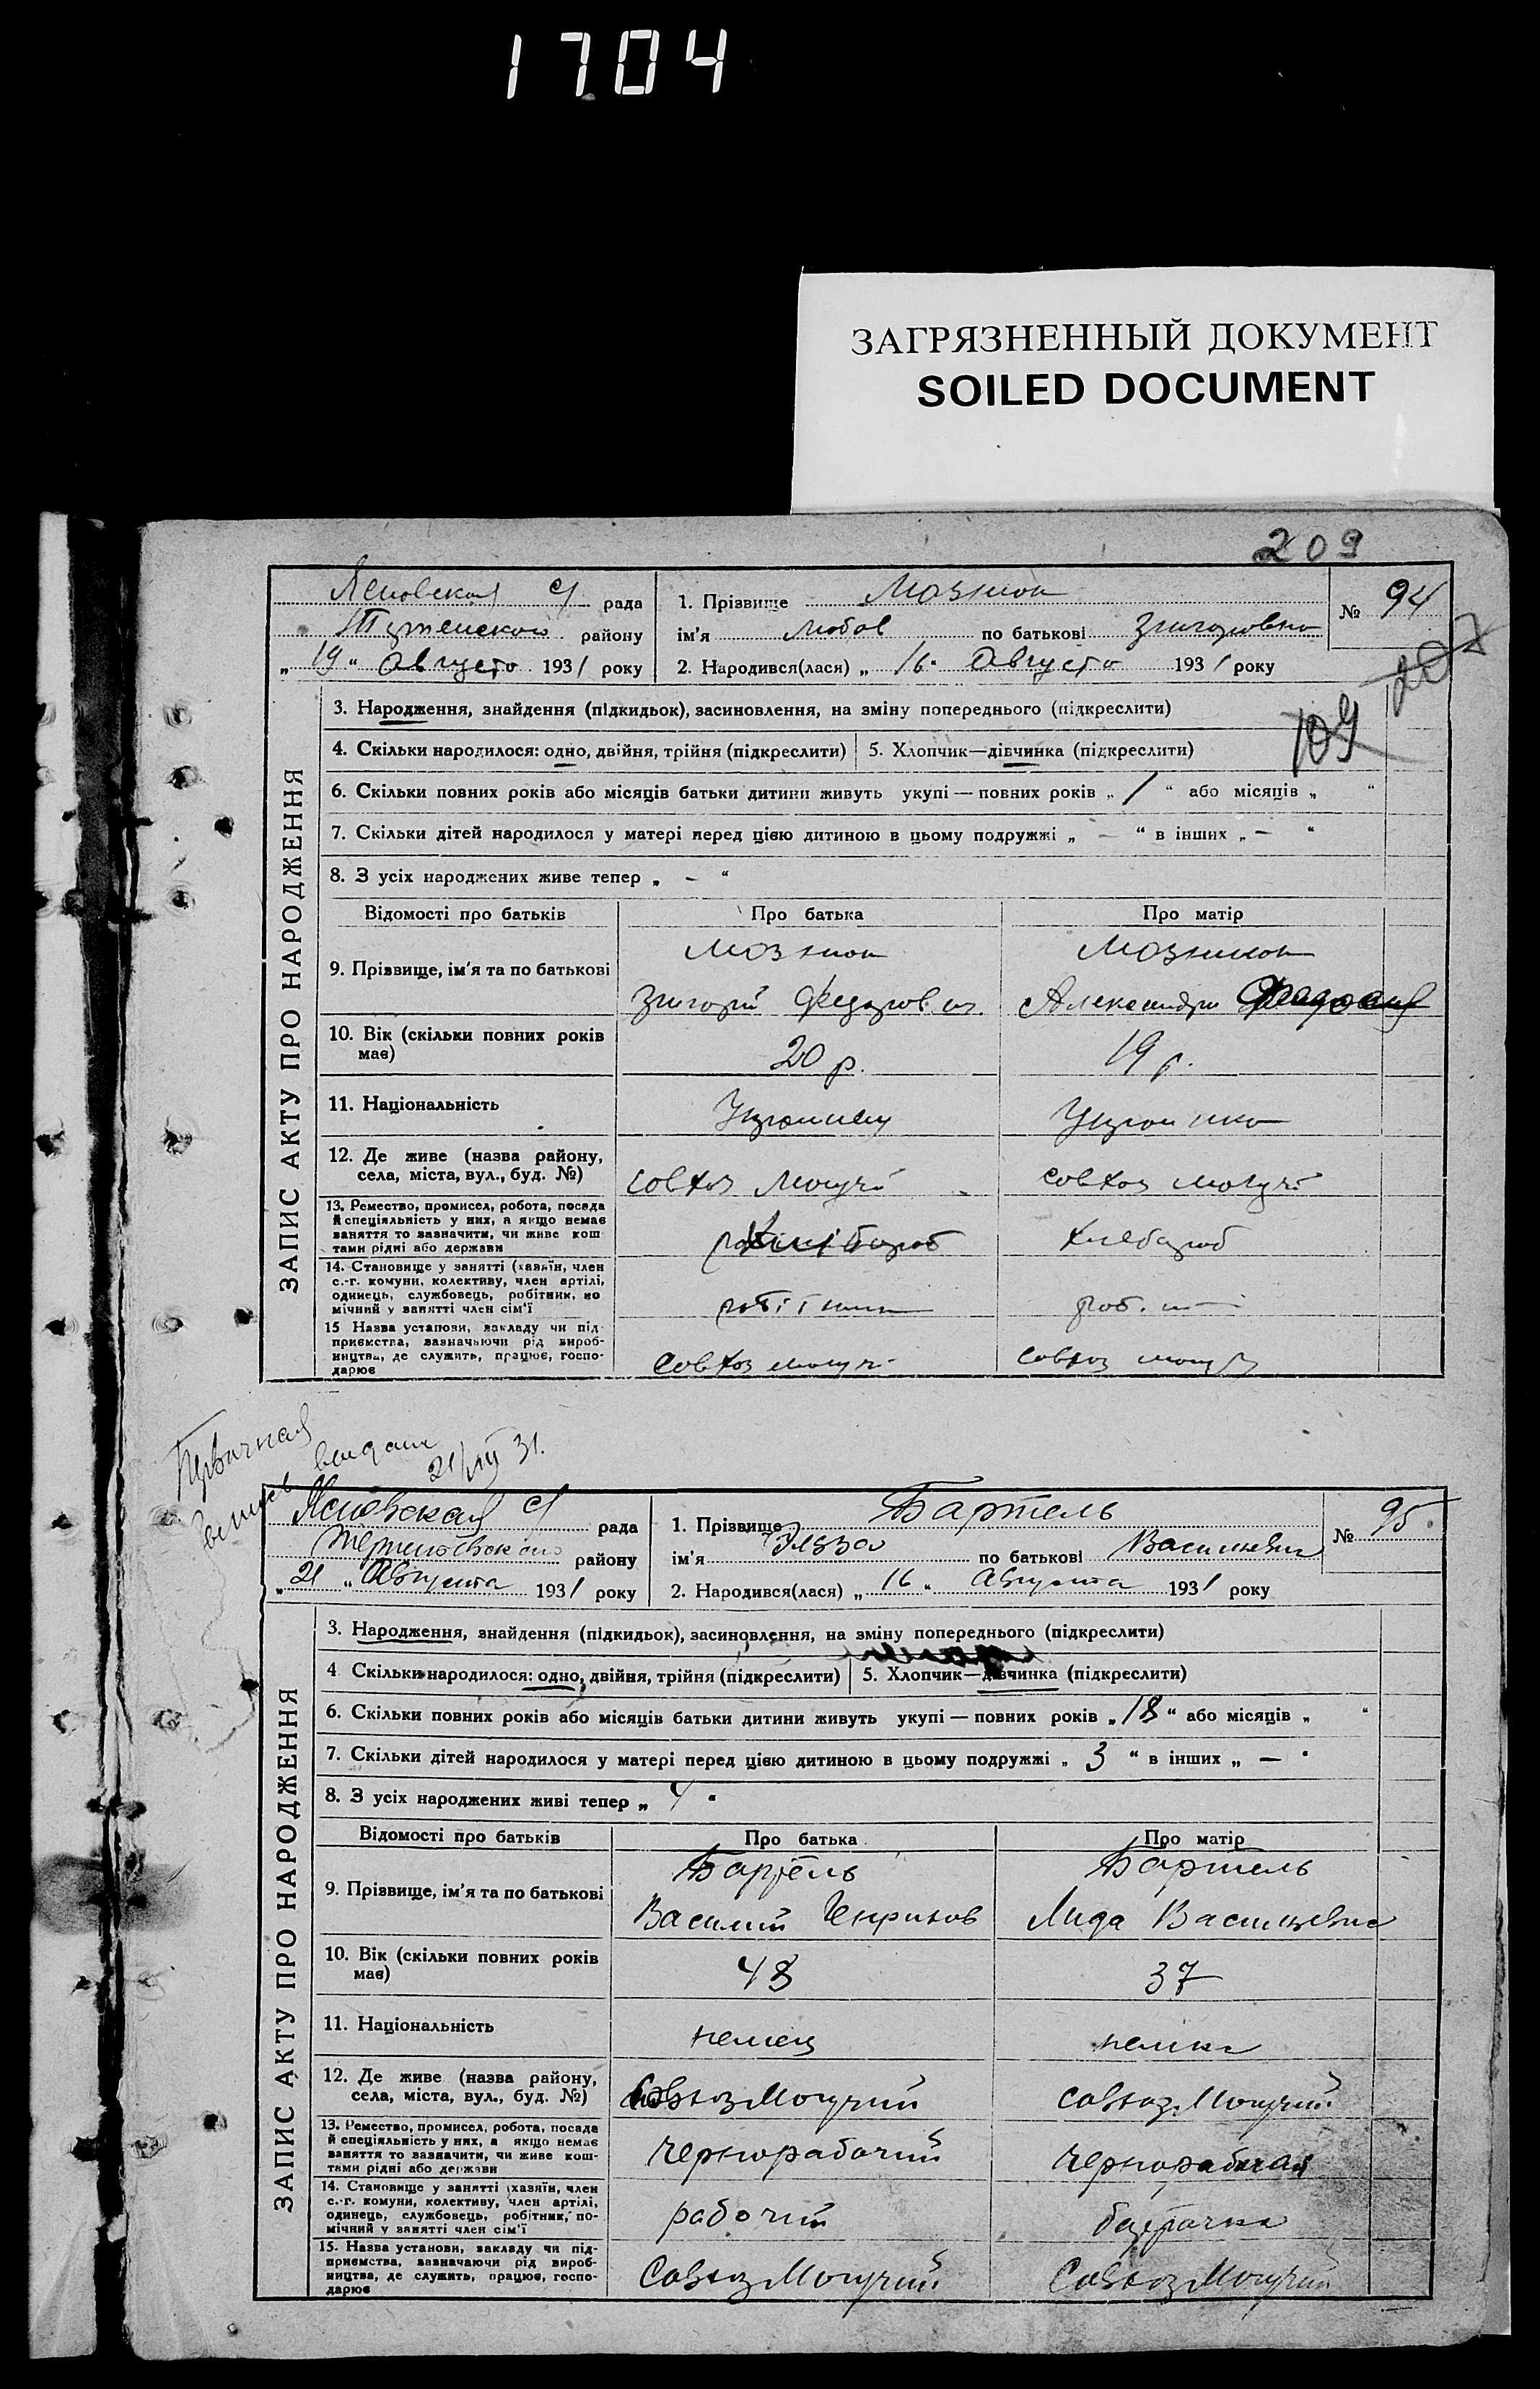 1704
ЗАГРЯЗНЕННЫЙ ДОКУМЕНТ
SOILED DOCUMENT
209
рада
1. Прізвище Мазнюк
№ 94
району
ім'я Любов по батькові
207
„ 19 “ Августа 1931 року
2. Народився(лася) „ 16 “ Августа 1931 року
ЗАПИС АКТУ ПРО НАРОДЖЕННЯ
3. Народження, знайдення (підкидьок), засиновлення, на зміну попереднього (підкреслити)
109
4. Скільки народилося: одно, двійня, трійня (підкреслити)
5. Хлопчик—дівчинка (підкреслити)
6. Скільки повних років або місяців батьки дитини живуть укупі — повних років „ 1 “ або місяців „ “
7. Скільки дітей народилося у матері перед цією дитиною в цьому подружжі „ — “ в інших „ — “
8. З усіх народжених живе тепер „ — “
Відомості про батьків
Про батька
Про матір
9. Прізвище, ім'я та по батькові
Мазнюк
Григорій
Александра
10. Вік (скільки повних років має)
20 р.
19 р.
11. Національність
12. Де живе (назва району, села, міста, вул., буд. №)
совхоз Могучі
совхоз Могучі
13. Ремество, промисел, робота, посада й спеціяльність у них, а якщо немає заняття то зазначити, чи живе коштами рідні або держави
хлебороб
14. Становище у занятті (хазяїн, член с.-г. комуни, колективу, член артілі, одинець, службовець, робітник, помічний у занятті член сім'ї
робітник
15 Назва установи, закладу чи підприємства, зазначаючи рід виробництва, де служить, працює, господарює
совхоз Могучі
совхоз
выдана
21/VIII 31.
рада
1. Прізвище Бартель
№ 95
району
ім'я Эльза по батькові Васильевна
„ 21 “ Августа 1931 року
2. Народився(лася) „ 16 “ Августа 1931 року
ЗАПИС АКТУ ПРО НАРОДЖЕННЯ
3. Народження, знайдення (підкидьок), засиновлення, на зміну попереднього (підкреслити)
4 Скільки народилося: одно, двійня, трійня (підкреслити)
5. Хлопчик—дівчинка (підкреслити)
6. Скільки повних років або місяців батьки дитини живуть укупі — повних років „ 18 “ або місяців „ “
7. Скільки дітей народилося у матері перед цією дитиною в цьому подружжі „ 3 “ в інших „ — “
8. З усіх народжених живі тепер „ 4 “
Відомості про батьків
Про батька
Про матір
9. Прізвище, ім'я та по батькові
Бартель
Бартель
Василий Генрихов
Лида Васильевна
10. Вік (скільки повних років має)
48
37
11. Національність
немец
немка
12. Де живе (назва району, села, міста, вул., буд. №)
Совхоз Могучий
Совхоз Могучий
13. Ремество, промисел, робота, посада й спеціяльність у них, а якщо немає заняття то зазначити, чи живе коштами рідні або держави
Чернорабочий
Чернорабочая
14. Становище у занятті (хазяїн, член с.-г. комуни, колективу, член артілі, одинець, службовець, робітник, помічний у занятті член сім'ї
рабочий
15. Назва установи, закладу чи підприємства, зазначаючи рід виробництва, де служить, працює, господарює
Совхоз Могучий
Совхоз Могучий